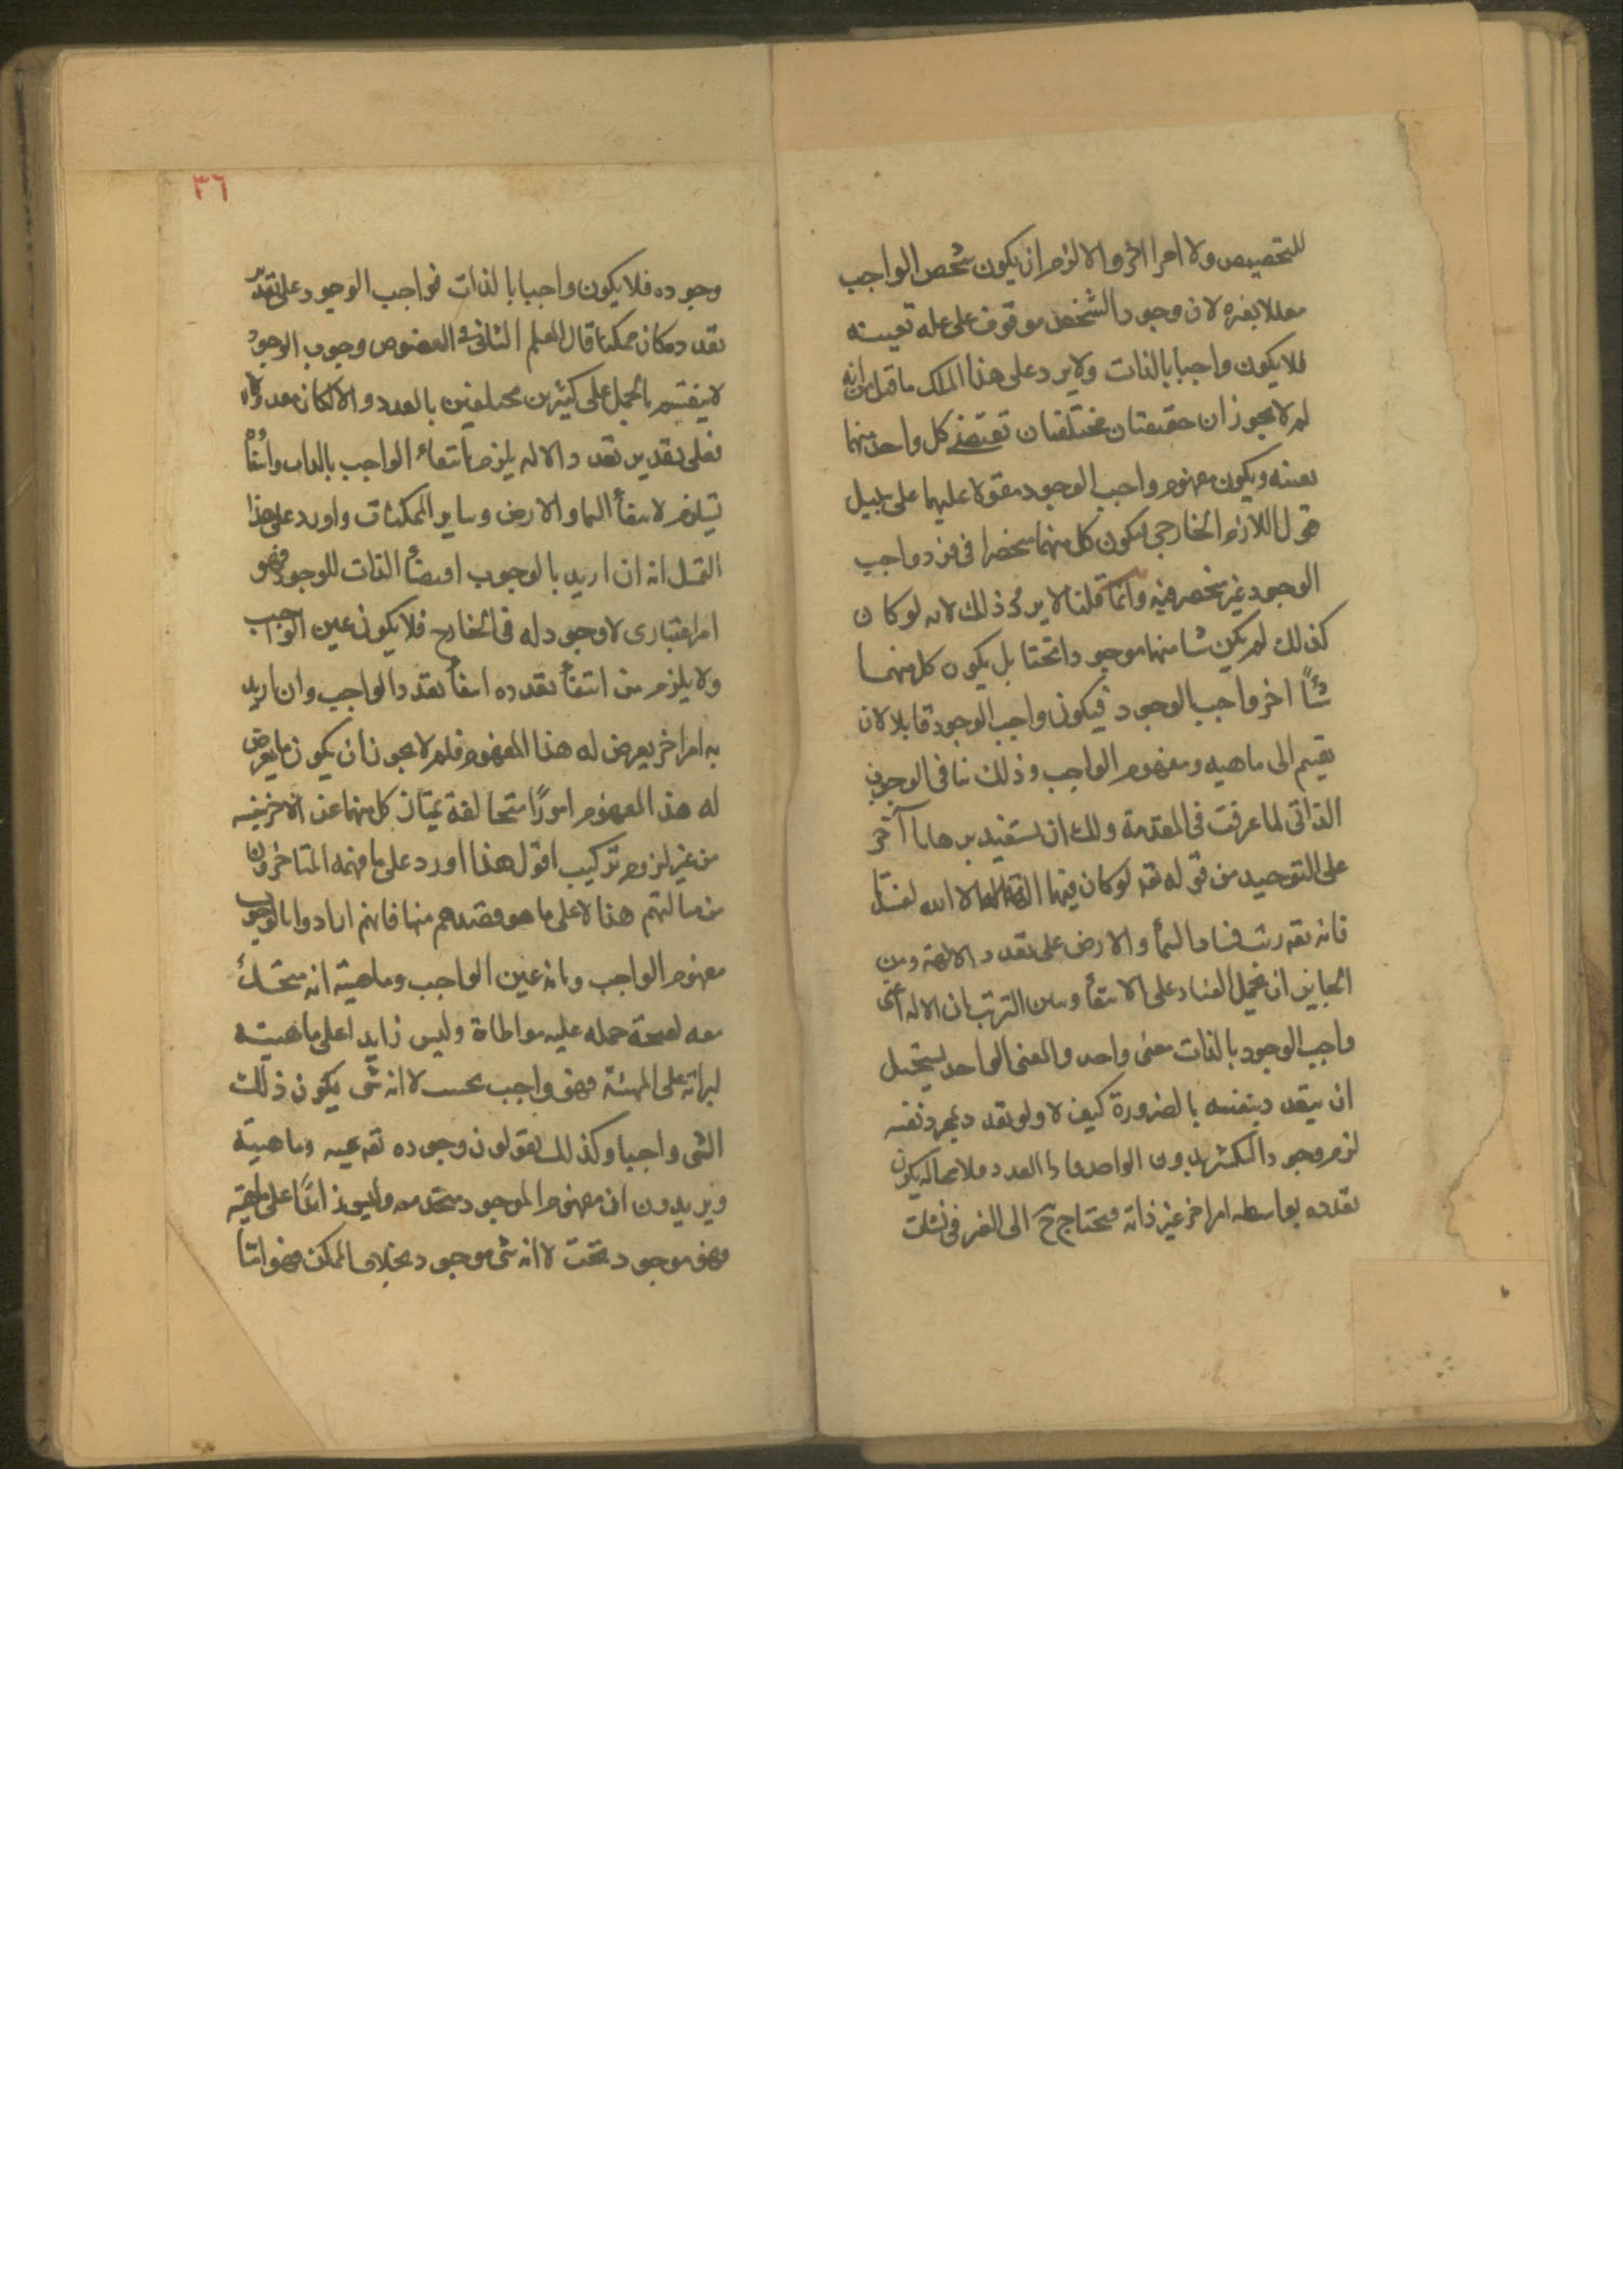 للتخصيص ولا امرا اخر والا لزم ان يكون شخص الواجب
معللا بغيره لان وجود الشخص موقوف على علة تعينه
فلا يكون واجبا بالذات ولا يرد على هذا المسلك ما قيل من انه
لم لا يجوز ان حقيقتان مختلفتان تقتضى كل واحد منهما
تعينه ويكون مفهوم واجب الوجود مقولا عليهما على سبيل
قول اللازم الخارجى فيكون كل منهما منحصرا فى فرد وواجب
الوجود غير منحصر فيه وانما قلنا لا يرد ذلك لانه لو كان
كذلك لم يكن شيئا منهما موجودا بحتا بل يكون كل منهما
شيئًا اخر واجب الوجود فيكون واجب الوجود قابلا لان
يقسم الى ماهيه ومفهوم الواجب وذلك ينافى الوجوب
الذاتى لما عرفت فى المقدمة ولك ان تستفيد برهانا آخر
على التوحيد من قوله تعه لو كان فيهما الهة الا الله لفسدتا
فانه تعه رتب فساد السمأ والارض على تعدد الالهة ومن
الجايز ان يحمل الفساد على الانتفأ وبيان الترتب بان الاله اعنى
واجب الوجود بالذات معنى واحد والمعنى الواحد يستحيل
ان يتعدد بنفسه بالضرورة كيف لا ولو تعدد بمجرد نفسه
لزم وجود الكثير بدون الواحد العدد فلا محالة يكون
تعدده بواسطه امر اخر غير ذاته فيحتاج ح الى الغير فى
٣٦
وجوده فلا يكون واجبا بالذات فواجب الوجود على تقدير
تعدده كان ممكنا قال المعلم الثانى فى الفصوص وجوب الوجود
لا ينقسم بالحمل على كثيرين مختلفين بالعدد والا لكان معلولا
فعلى تقدير تعدد الاله يلزم انتفاء الواجب بالذات وانتفاؤه
يستلزم لانتفأ السما والارض وساير الممكنات واورد على هذا
انه ان اريد بالوجوب اقتضأ الذات للوجود فهو
امر اعتبارى لا وجود له فى الخارج فلا يكون عين الواجب
ولا يلزم من انتفأ تعدده انتفأ تعدد الواجب وان اريد
به امر اخر يعرض له هذا المفهوم فلم لا يجوز ان يكون ما يعرض
له هذا المفهوم امورًا متخالفة يمتاز كل منها عن الاخر بنفسه
من غير لزوم تركيب اقول هذا اورد على ما فهمه المتاخرون
من مسالتهم هذا لا على ما هو مقصدهم منها فانهم ارادوا بالوجوب
مفهوم الواجب وبانه عين الواجب وماهيته انه متحد
معه لصحة حمله عليه مواطاة وليس زايدا على ماهيته
لبراته على المهية فهو واجب بحت لا انه شى يكون ذلك
الشى واجبا وكذلك يقولون وجوده تعه عينه وماهيته
ويريدون ان مفهوم الموجود متحد معه وليس زائدًا على ماهيته
فهو موجود بحت لا انه شى موجود بخلاف الممكن فهو